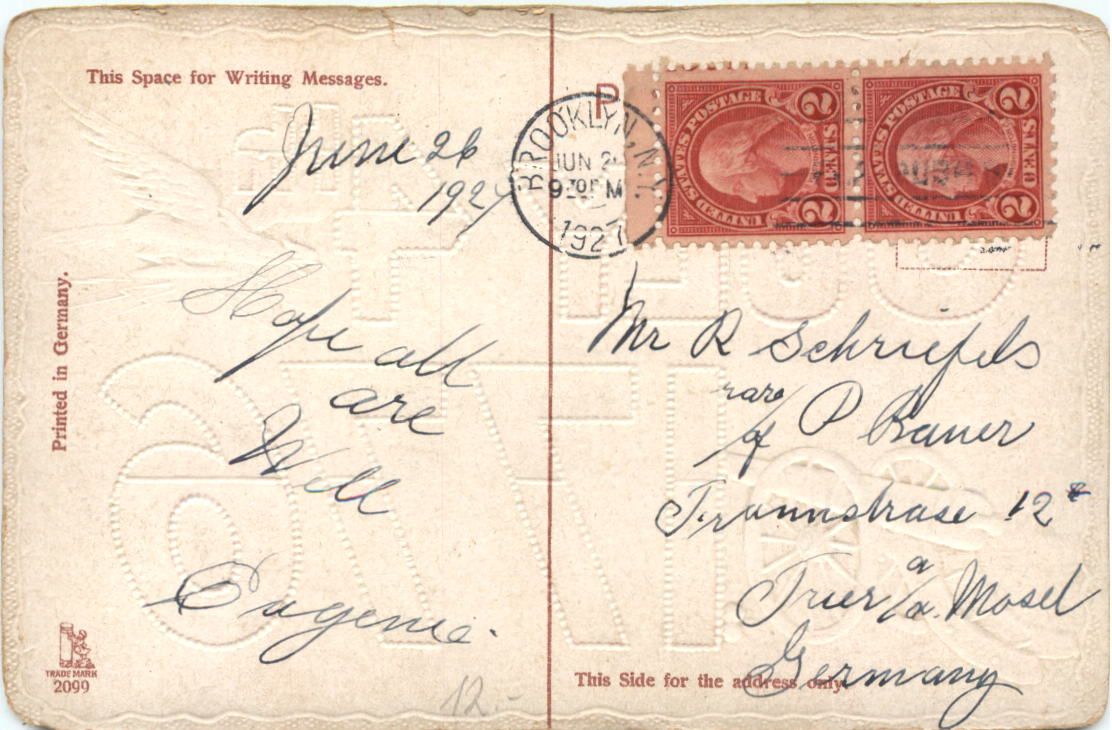 This Space for Writing Messages.
June 26
1927
Hope all
are
Well
Eugenie.
Printed in Germany.
TRADE MARK
2099
12.-
P
BROOKLYN, N.Y.
JUN 2
9 30 PM
1927
UNITED STATES POSTAGE
2 CENTS 2
UNITED STATES POSTAGE
2 CENTS 2
Mr R Schriefels
care
of P Bauer
12
Trier a/d. Mosel
Germany
This Side for the address only